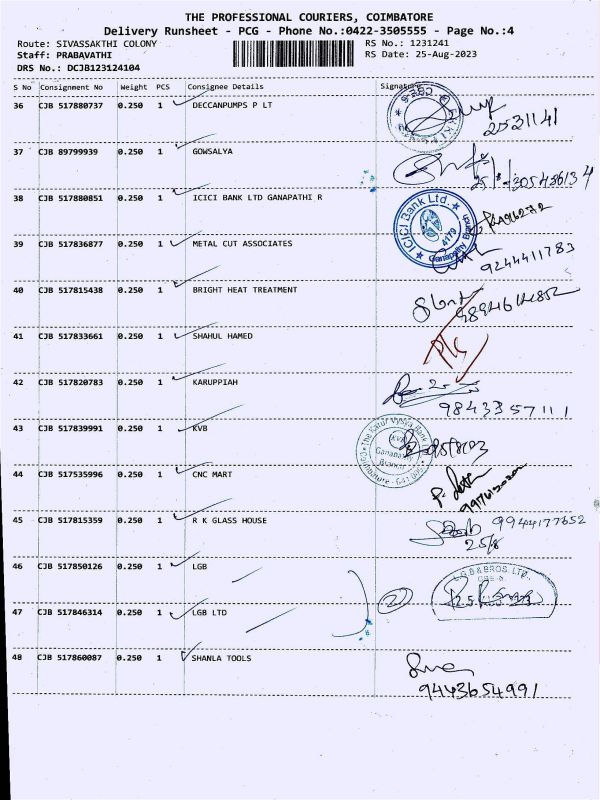 THE PROFESSIONAL COURIERS, COIMBATORE
Delivery Runsheet - PCG - Phone No.:0422-3505555 - Page No.:4
Route: SIVASSAKTHI COLONY RS No.: 1231241
Staff: PRABAVATHI RS Date: 25-Aug-2023
DRS No.: DCJB123124104
S No Consignment No Weight PCS Consignee Details Signature
36 CJB 517880737 0.250 1 DECCANPUMPS P LT
2531141
37 CJB 89799939 0.250 1 GOWSALYA
38 CJB 517880851 0.250 1 ICICI BANK LTD GANAPATHI R
ICICI Bank Ltd.
4179
39 CJB 517836877 0.250 1 METAL CUT ASSOCIATES
9244411783
40 CJB 517815438 0.250 1 BRIGHT HEAT TREATMENT
41 CJB 517833661 0.250 1 SHAHUL HAMED
42 CJB 517820783 0.250 1 KARUPPIAH
9843357111
43 CJB 517839991 0.250 1 KVB
The Karur Vysya Bank
KVB
Ganapathy
Branch
Coimbatore - 641 006
44 CJB 517535996 0.250 1 CNC MART
45 CJB 517815359 0.250 1 R K GLASS HOUSE
9944177652
25/8
46 CJB 517850126 0.250 1 LGB
L.G.B & BROS. LTD.
CBE-6.
47 CJB 517846314 0.250 1 LGB LTD
2
48 CJB 517860087 0.250 1 SHANLA TOOLS
9443654991